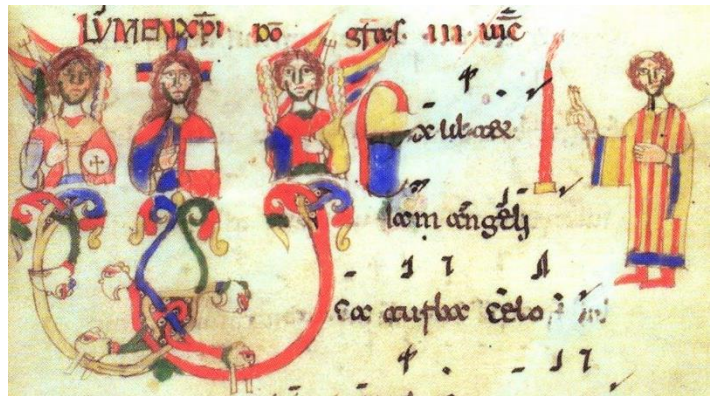 LVMEN XPI DŌ gr̄as III uic̄
Exultet
iam angeli
ca turba celo